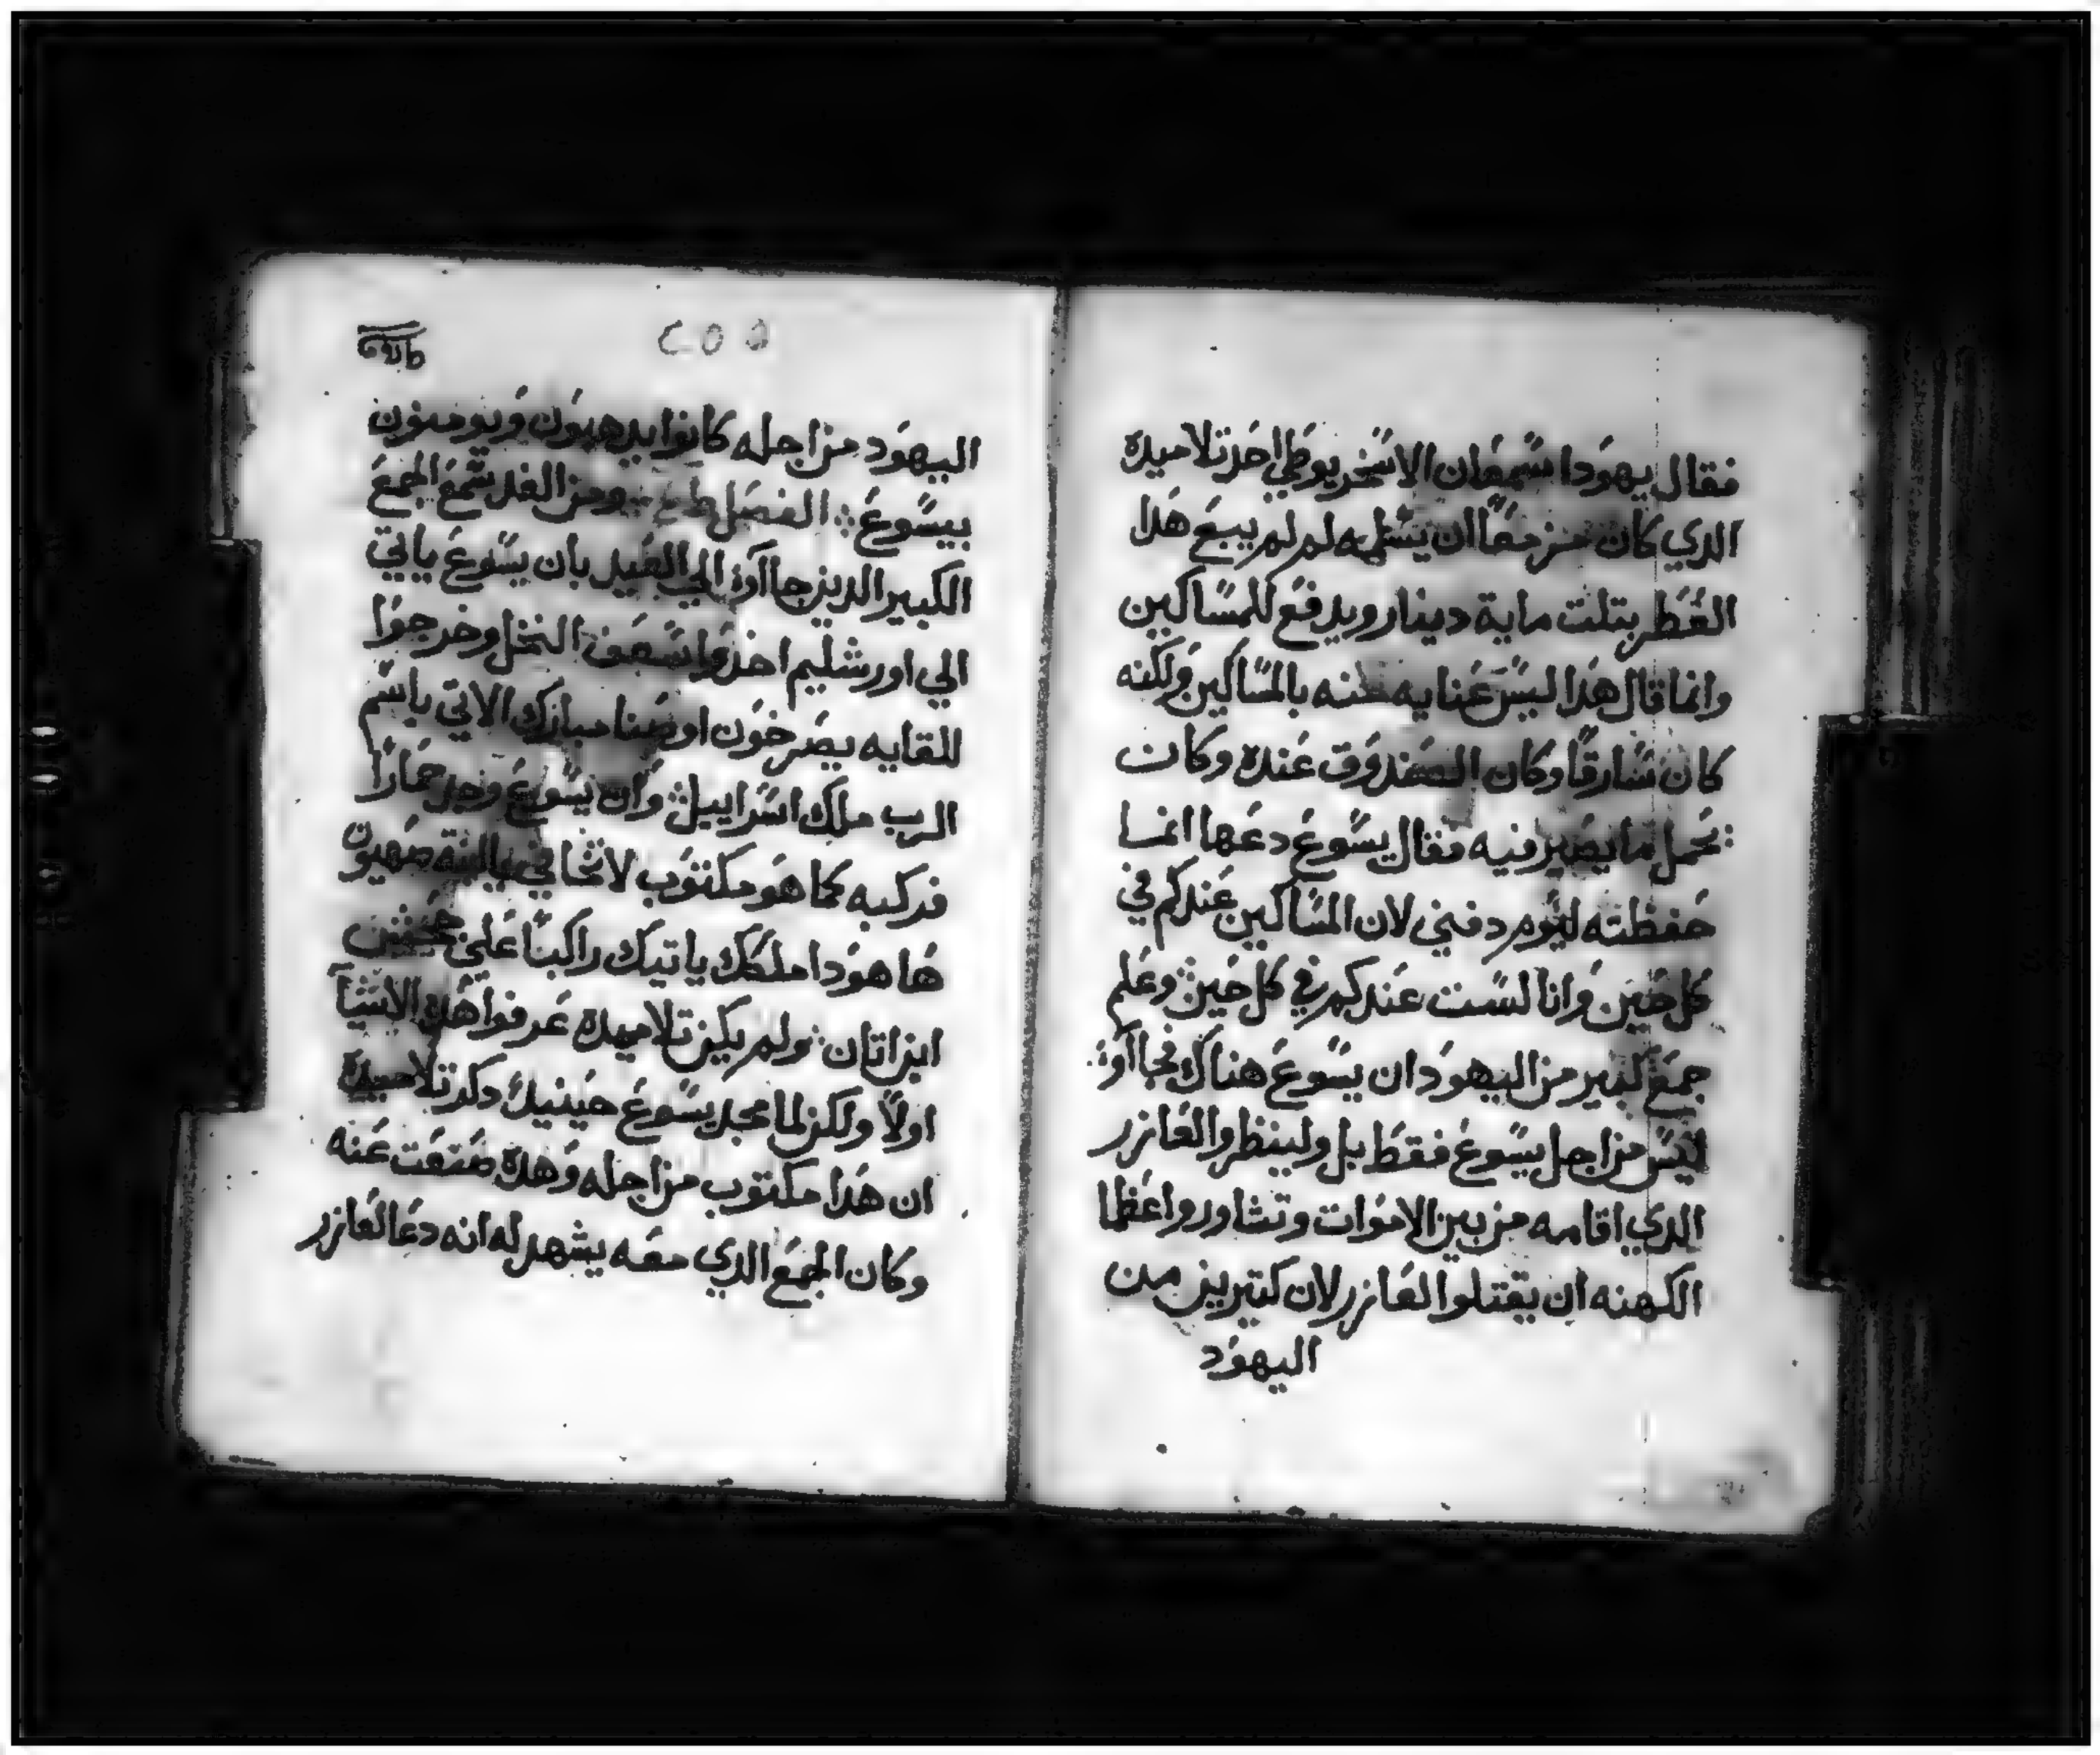 فقال يهودا سمعان الاسخريوطي احد تلاميده
الدي كان مزمعًا ان يسلمه لم لم يبيع هدا
العطر بتلت ماية دينار ويدفع للمساكين
وانما قال هدا ليس عنايه منه بالمساكين ولكنه
كان سارقًا وكان الصندوق عنده وكان
يحمل ما يصير فيه فقال يسوع دعها انما
حفظته ليوم دفني لان المساكين عندكم في
كل حين وانا لست عندكم في كل حين وعلم
جمع كبير من اليهود ان يسوع هناك فجااوا
ليس من اجل يسوع فقط بل ولينظروا العازر
الدي اقامه من بين الاموات وتشاوروا عظما
الكهنه ان يقتلوا العازر لان كتيرين من
اليهود
٢٥٥
اليهود من اجله كانوا يدهبون ويومنون
بيسوع الفصل ومن الغد سمع الجمع
الكبير الدين جااوا الي العيد بان يسوع ياتي
الي اورشليم اخدوا سعف النخل وخرجوا
للقايه يصرخون اوصنا مبارك الاتي باسم
الرب ملك اسراييل وان يسوع وجد حمارًا
فركبه كما هو مكتوب لا تخافي يا ابنة صهيون
ها هودا ملكك ياتيك راكبًا علي جحش
ابن اتان ولم يكن تلاميده عرفوا هده الاشيا
اولًا ولكن لما مجد يسوع حينيد دكر تلاميده
ان هدا مكتوب من اجله وهده صنعت عنه
وكان الجمع الدي معه يشهد له انه دعا لعازر